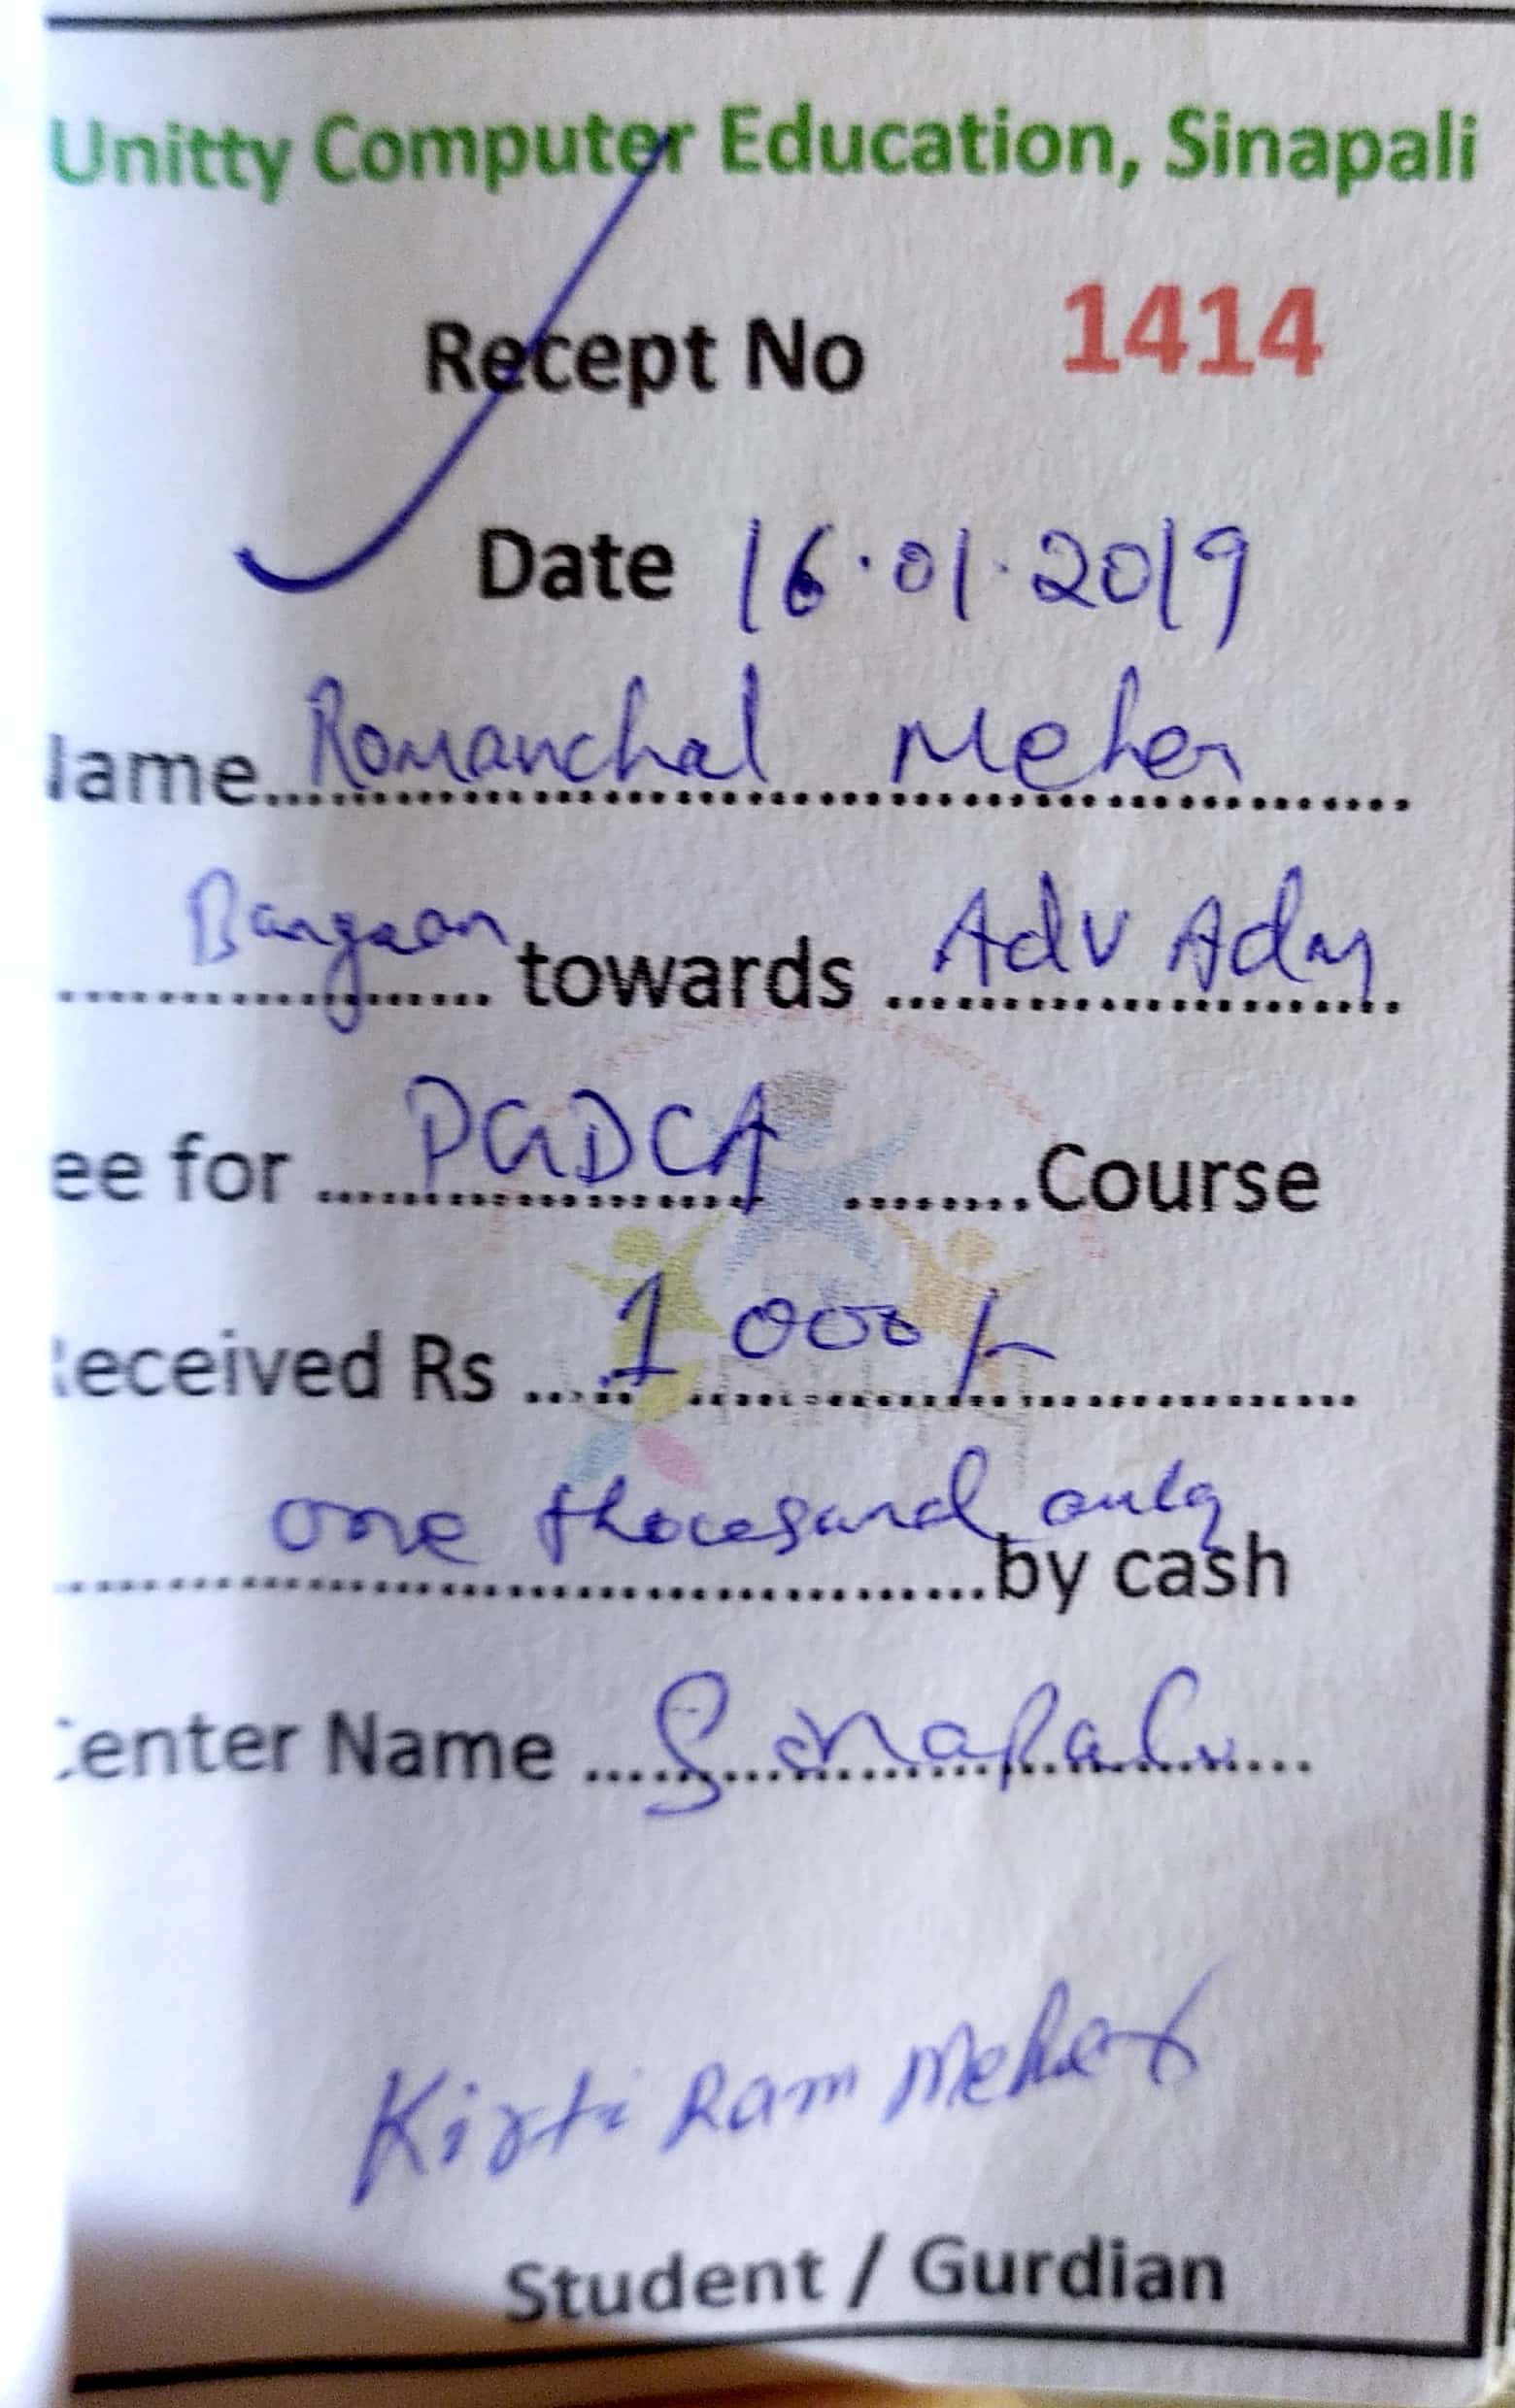 Unitty Computer Education, Sinapali
Recept No 1414
Date 16.01.2019
ame Romanchal Meher
Bargaon towards Adv Adm
ee for PGDCA Course
eceived Rs 1000/-
one thousand only by cash
enter Name Sinapali
Kirti Ram Meher
Student / Gurdian